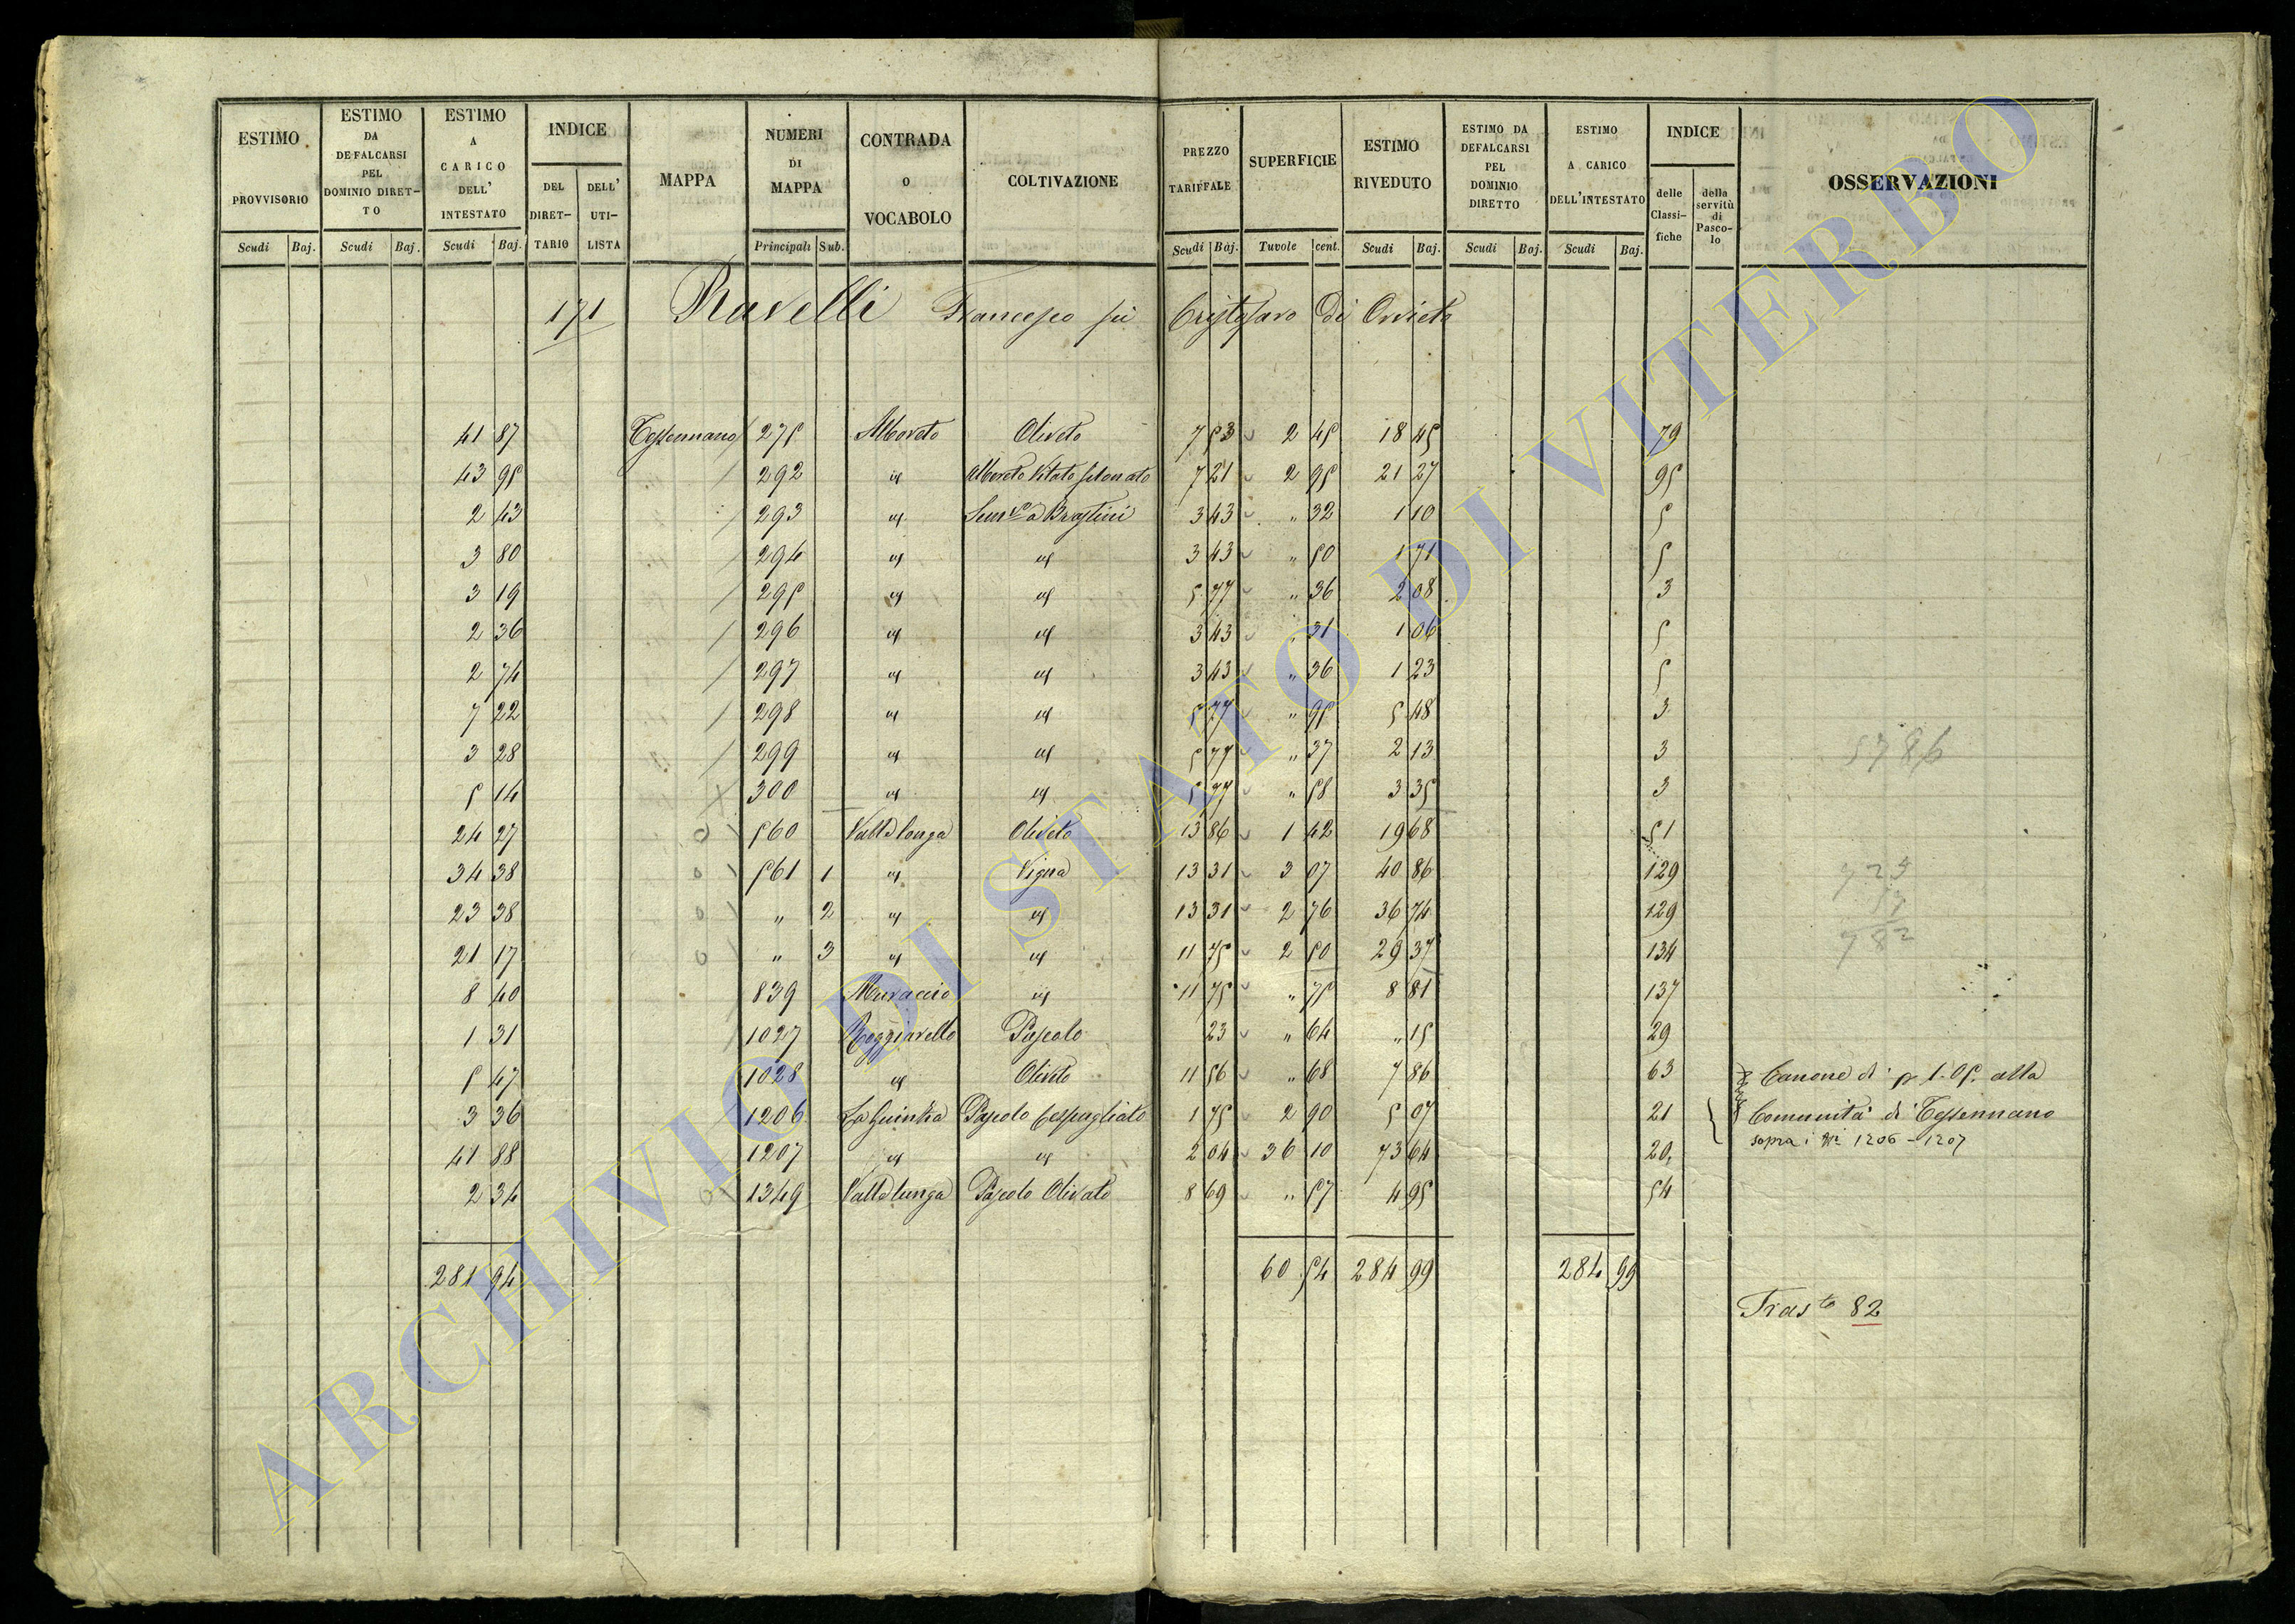 ESTIMO PROVVISORIO Scudi Baj. | ESTIMO DA DEFALCARSI PEL DOMINIO DIRET-TO Scudi Baj. | ESTIMO A CARICO DELL' INTESTATO Scudi Baj. | INDICE DEL DIRET-TARIO DELL' UTI-LISTA | MAPPA | NUMERI DI MAPPA Principali Sub. | CONTRADA O VOCABOLO | COLTIVAZIONE | PREZZO TARIFFALE Scudi Baj. | SUPERFICIE Tavole cent. | ESTIMO RIVEDUTO Scudi Baj. | ESTIMO DA DEFALCARSI PEL DOMINIO DIRETTO Scudi Baj. | ESTIMO A CARICO DELL'INTESTATO Scudi Baj. | INDICE delle Classi-fiche della servitù di Pasco-lo | OSSERVAZIONI
171 Ravelli Francesco fu Cristofaro di Orvieto
41 87 Tessennano 275 Alboreto Oliveto 7 53 2 45 18 45 79
43 95 292 id Alboreto Vitato 7 21 2 95 21 27 95
2 43 293 id 3 43 " 32 1 10 5
3 80 294 id id 3 43 " 50 1 71 5
3 19 295 id id 5 77 " 36 2 08 3
2 36 296 id id 3 43 " 31 1 06 5
2 74 297 id id 3 43 " 36 1 23 5
7 22 298 id id 5 77 " 95 5 48 3
3 28 299 id id 5 77 " 37 2 13 3
5786
5 14 300 id id 5 77 " 58 3 35 3
24 27 0 560 Valle longa Oliveto 13 86 1 42 19 68 51
34 38 0 561 1 id Vigna 13 31 3 07 40 86 129
725
23 38 0 " 2 id id 13 31 2 76 36 74 129
57
21 17 0 " 3 id id 11 75 2 50 29 37 134
782
8 40 839 Muraccio id 11 75 " 75 8 81 137
1 31 1027 Poggiarello Pascolo 23 " 64 " 15 29
5 47 1028 id Oliveto 11 56 " 68 7 86 63 Canone di 1.05 alla
3 36 1206 Pascolo Cespugliato 1 75 2 90 5 07 21 Comunità di Tessennano
41 88 1207 id id 2 04 36 10 73 64 20 sopra i Ni 1206 - 1207
2 34 0 1349 Valle lunga Pascolo Olivato 8 69 " 57 4 95 54
281 94 60 54 284 99 284 99
Trasto 82
ARCHIVIO DI STATO DI VITERBO